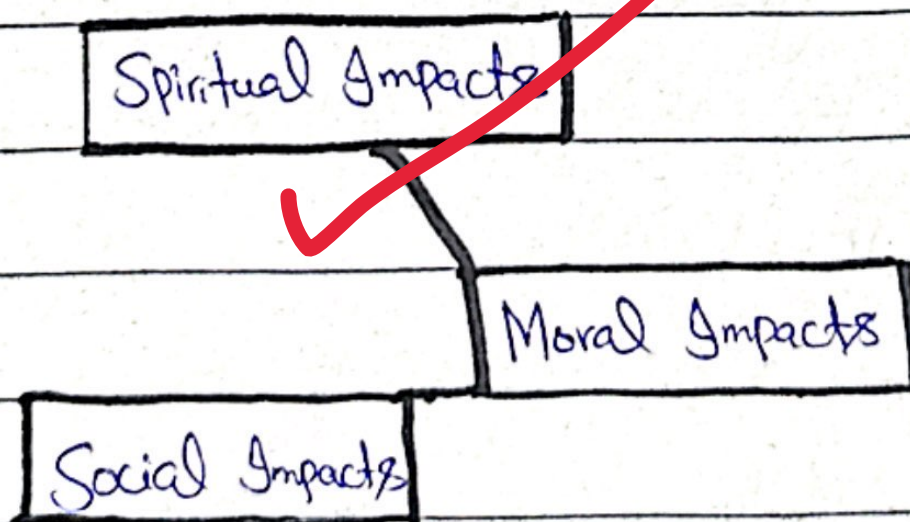 Spiritual Impacts
Moral Impacts
Social Impacts